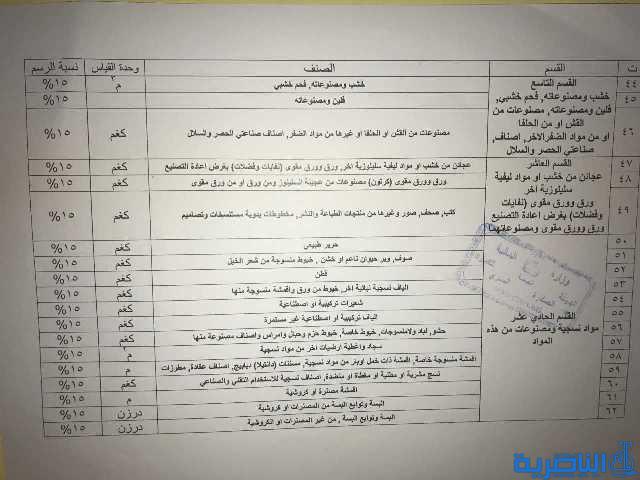 ت القسم الصنف وحدة القياس نسبة الرسم
٤٤ القسم التاسع خشب ومصنوعاته, فحم خشبي م٣ %١٥
٤٥ خشب ومصنوعاته, فحم خشبي, فلين ومصنوعاته %١٥
فلين ومصنوعاته, مصنوعات من
القش او من الحلفا
٤٦ او من مواد الضفر الاخر, اصناف, مصنوعات من القش او الحلفا او غيرها من مواد الضفر, اصناف صناعتي الحصر والسلال كغم %١٥
صناعتي الحصر والسلال
٤٧ القسم العاشر عجائن من خشب او مواد ليفية سليلوزية اخر, ورق وورق مقوى (نفايات وفضلات) بغرض اعادة التصنيع كغم %١٥
٤٨ عجائن من خشب او مواد ليفية ورق وورق مقوى (كرتون) مصنوعات من عجينة السليلوز ومن ورق او من ورق مقوى كغم %١٥
سليلوزية اخر
٤٩ ورق وورق مقوى (نفايات كتب, صحف, صور وغيرها من منتجات الطباعة والنشر, مخطوطات يدوية مستنسخات وتصاميم كغم %١٥
وفضلات) بغرض اعادة التصنيع
ورق وورق مقوى ومصنوعاتهما
٥٠ حرير طبيعي كغم %١٥
٥١ صوف, وبر حيوان ناعم او خشن, خيوط منسوجة من شعر الخيل كغم %١٥
٥٢ قطن كغم %١٥
٥٣ الياف نسجية نباتية اخر, خيوط من ورق واقمشة منسوجة منها كغم %١٥
٥٤ شعيرات تركيبية او اصطناعية كغم %١٥
٥٥ القسم الحادي عشر الياف تركيبية او اصطناعية غير مستمرة كغم %١٥
٥٦ مواد نسجية ومصنوعات من هذه حشو, لباد ولامنسوجات, خيوط خاصة, خيوط حزم وحبال وامراس واصناف مصنوعة منها كغم %١٥
٥٧ المواد سجاد واغطية ارضيات اخر من مواد نسجية م٢ %١٥
٥٨ اقمشة منسوجة خاصة, اقمشة ذات خمل اوبار من مواد نسجية, مسننات (دانتيلا) دبابيج, اصناف عقادة, مطرزات م %١٥
٥٩ نسج مشربة او مطلية او مغطاة او منضدة, اصناف نسجية للاستخدام التقني والصناعي كغم %١٥
٦٠ اقمشة مصنرة او كروشية م %١٥
٦١ البسة وتوابع البسة من المصنرات او كروشية درزن %١٥
٦٢ البسة وتوابع البسة, من غير المصنرات او الكروشية درزن %١٥
الناصرية